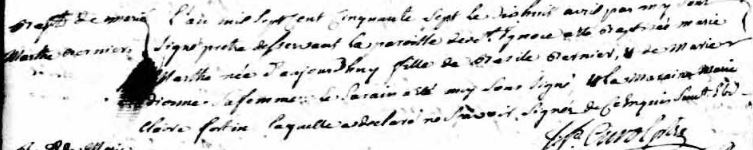 Bapt. de marie
Marthe Bernier
L'an mil sept cent cinquante sept le dishuit avril par moy sous
signé pretre desservant la paroisse de st Ignace a été baptisée marie
Marthe née d'aujourd'huy fille de Basile Bernier, & de Marie
dionne sa femme, le parain a été moy sous signé & la Maraine Marie
Claire fortin laquelle a declaré ne sçavoir signer de ce enquis suivt l'Ord